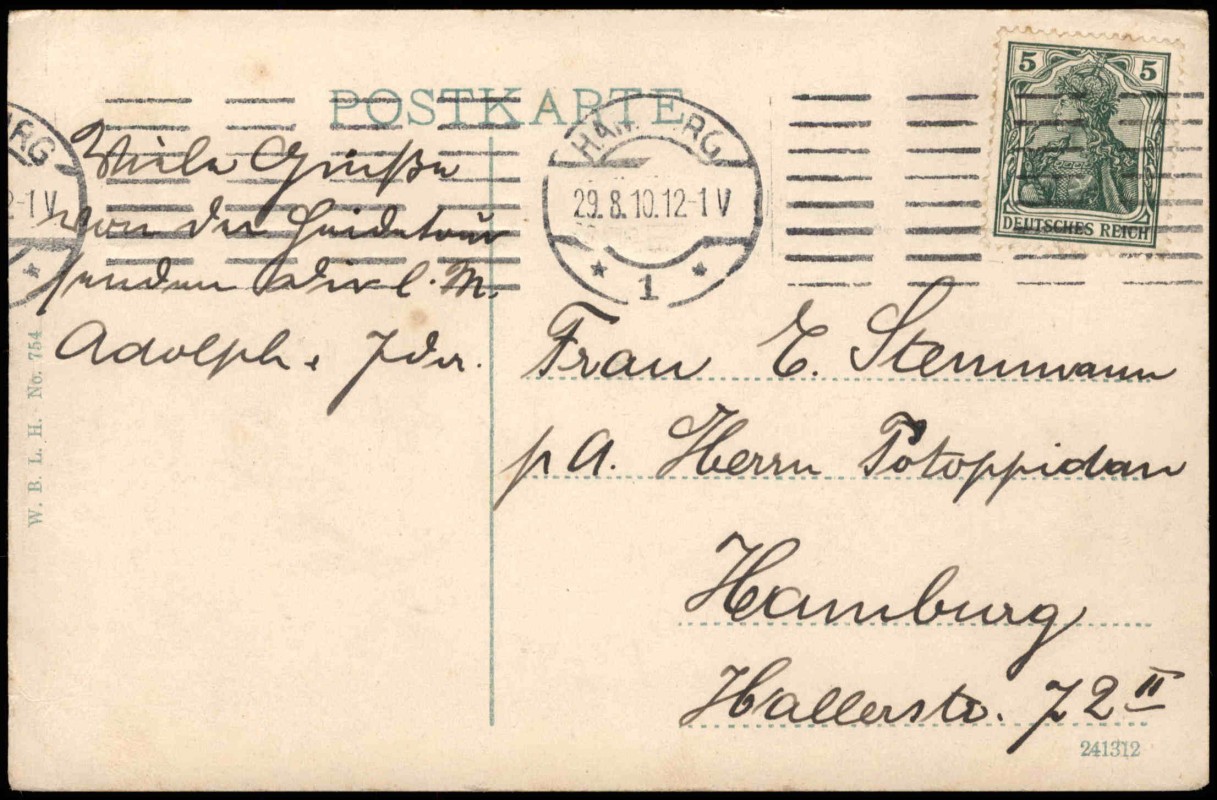 POSTKARTE
HAMBURG
29.8.10.12-1 V
* 1 *
5 5
DEUTSCHES REICH
RG
2-1 V
*
Viele Grüße
von der Heidetour
senden Dir l. M.
Adolph.
W. B. L. H. No. 754
Frau E. Sternmann
p A. Herrn Potoppidan
Hamburg
Hallerstr. 72 II
241312